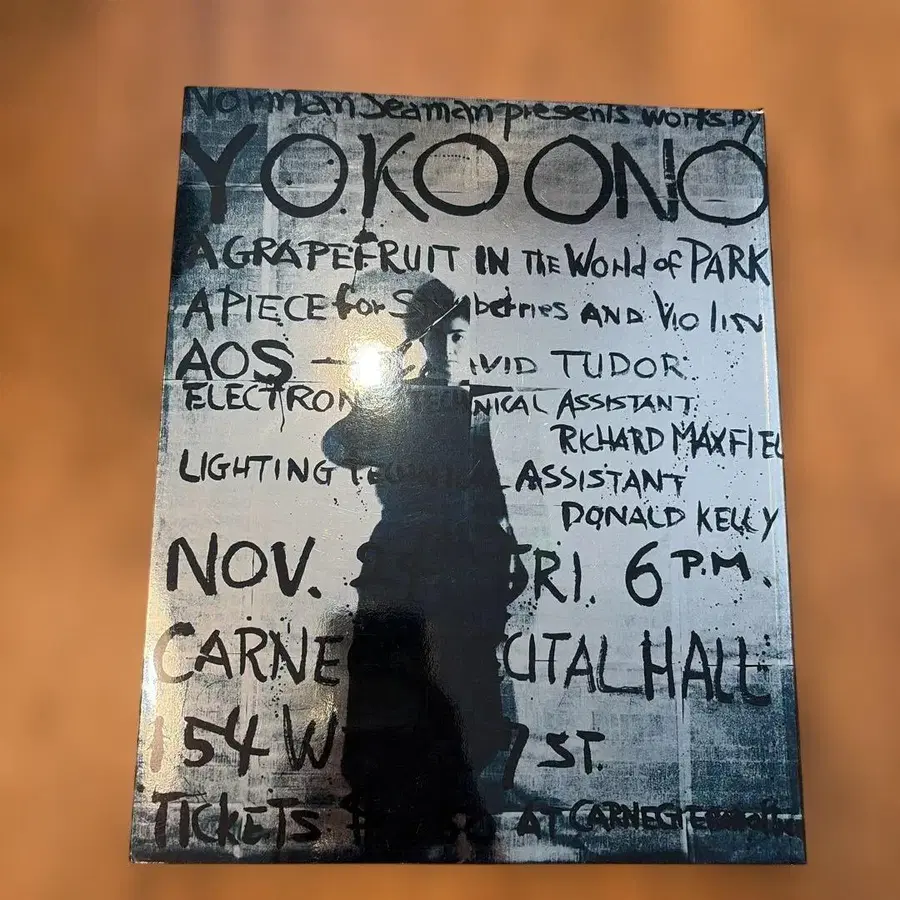 Norman Seaman presents works by
YOKO ONO
A GRAPEFRUIT IN THE World of PARK
A PIECE for S berries AND Violin
AOS — VID TUDOR
ELECTRON NICAL ASSISTANT
RICHARD MAXFIEL
LIGHTING TECHNICAL ASSISTANT
DONALD KELLY
NOV. FRI. 6 P.M.
CARNE CITAL HALL
154 W 7 ST.
TICKETS $ AT CARNEGIE